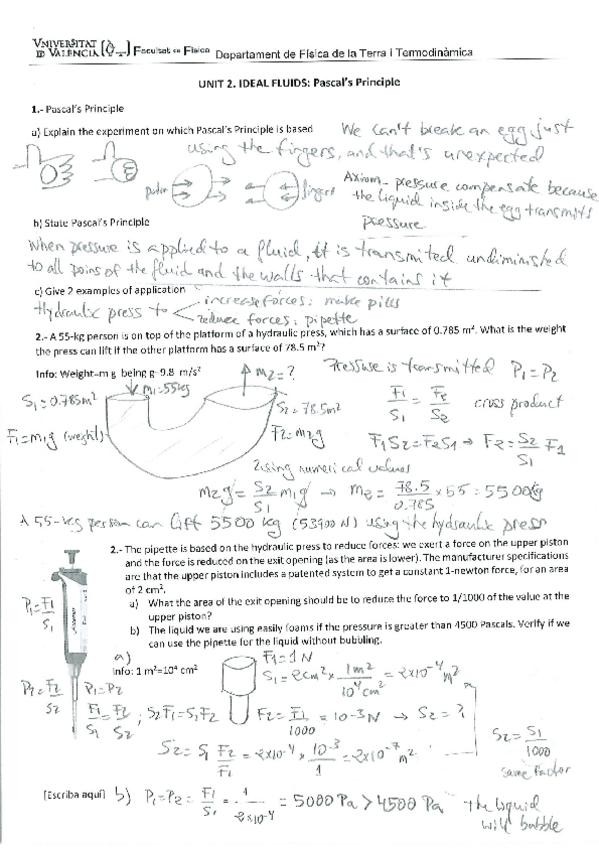 VNIVERSITAT
ID VALÈNCIA Facultat de Física Departament de Física de la Terra i Termodinàmica
UNIT 2. IDEAL FLUIDS: Pascal's Principle
1.- Pascal's Principle
a) Explain the experiment on which Pascal's Principle is based We can't break an egg just
using the fingers, and that's unexpected
fingers
Axiom- pressure compensate because
the liquid inside the egg transmits
pressure
b) State Pascal's Principle
When pressure is applied to a fluid, it is transmited undiminished
to all poins of the fluid and the walls that contains it
c) Give 2 examples of application
Hydraulic press to increase forces: make pills
reduce forces: pipette
2.- A 55-kg person is on top of the platform of a hydraulic press, which has a surface of 0.785 m². What is the weight
the press can lift if the other platform has a surface of 78.5 m²?
Info: Weight=m g being g=9.8 m/s²
m₂=?
Pressure is transmitted P₁=P₂
m₁=55kg
S₁=0.785m²
S₂=78.5m²
F₁/S₁ = F₂/S₂ cross product
F₁=m₁g (weight)
F₂=m₂g
F₁S₂=F₂S₁ → F₂=S₂/S₁ F₁
using numerical values
m₂g=S₂/S₁ m₁g → m₂=78.5/0.785 × 55 = 5500kg
A 55-kg person can lift 5500 kg (53900 N) using the hydraulic press
2.- The pipette is based on the hydraulic press to reduce forces: we exert a force on the upper piston
and the force is reduced on the exit opening (as the area is lower). The manufacturer specifications
are that the upper piston includes a patented system to get a constant 1-newton force, for an area
of 2 cm².
P₁=F₁/S₁
a) What the area of the exit opening should be to reduce the force to 1/1000 of the value at the
upper piston?
b) The liquid we are using easily foams if the pressure is greater than 4500 Pascals. Verify if we
can use the pipette for the liquid without bubbling.
a)
Info: 1 m²=10⁴ cm²
F₁=1N
S₁=2cm² × 1m²/10⁴cm² = 2×10⁻⁴ m²
P₂=F₂/S₂
P₁=P₂
F₁/S₁=F₂/S₂ ; S₂F₁=S₁F₂
F₂=F₁/1000=10⁻³N → S₂=?
S₂=S₁ F₂/F₁ = 2×10⁻⁴ × 10⁻³/1 = 2×10⁻⁷ m²
S₂=S₁/1000
same factor
[Escriba aquí] b) P₁=P₂= F₁/S₁ = 1/2×10⁻⁴ = 5000 Pa > 4500 Pa The liquid
will bubble